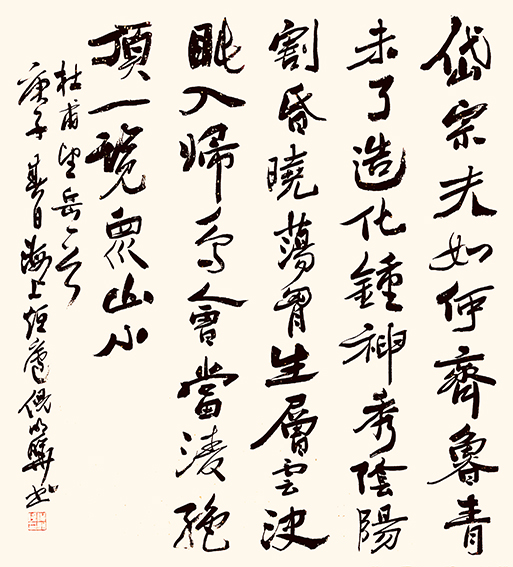 岱宗夫如何齊魯青
未了造化鍾神秀陰陽
割昏曉蕩胷生層雲決
眦入歸鳥會當淩絕
頂一覽衆山小
杜甫望岳一首
庚子春日海上烜廬倪書